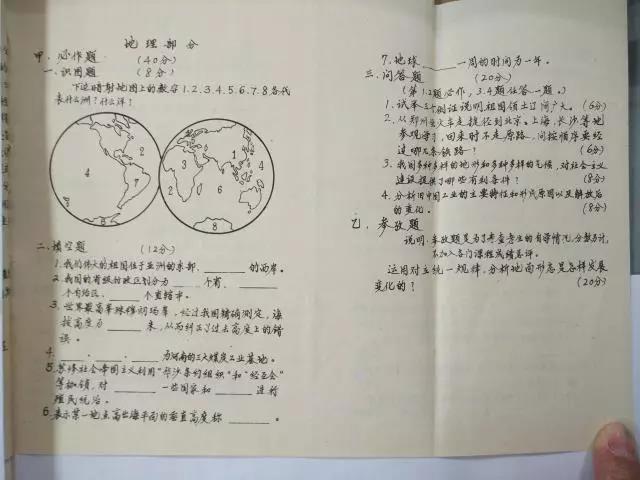 地理部分
甲．必作题 （40分）
一．识图题 （8分）
下边暗射地图上的数字1.2.3.4.5.6.7.8各代
表什么洲？什么洋？
1
2
3
4
5
6
7
8
二．填空题 （12分）
1．我们伟大的祖国位于亚洲的东部，______的西岸。
2．我国的省级行政区划分为____个省、____
个自治区、____个直辖市。
3．世界最高峰珠穆朗玛峰，经过我国精确测定，海
拔高度为______米，从而纠正了过去高度上的错
误。
4．____．____．____为河南的三大煤炭工业基地。
5．苏修社会帝国主义利用"华沙条约组织"和"经互会"
等枷锁，对____一些国家和____进行
殖民统治。
6．表示某一地点高出海平面的垂直高度称______。
7．地球____一周的时间为一年。
三．问答题 （20分）
（第1.2题必作，3.4题任答一题。）
1．试举三个例证说明祖国领土辽阔广大。 （6分）
2．从郑州坐火车走捷径到北京、上海、长沙等地
参观学习，回来时不走原路，问按顺序要经
过哪几条铁路？ （6分）
3．我国多种多样的地形和多种多样的气候，对社会主义
建设提供了哪些有利条件？ （8分）
4．分析旧中国工业的主要特征和形成原因以及解放后
的变化。 （8分）
乙．参考题
说明：本题是为了考查考生的自学情况，分数另计，
不加入各门课程成绩总评。
运用对立统一规律，分析地面形态是怎样发展
变化的？ （20分）